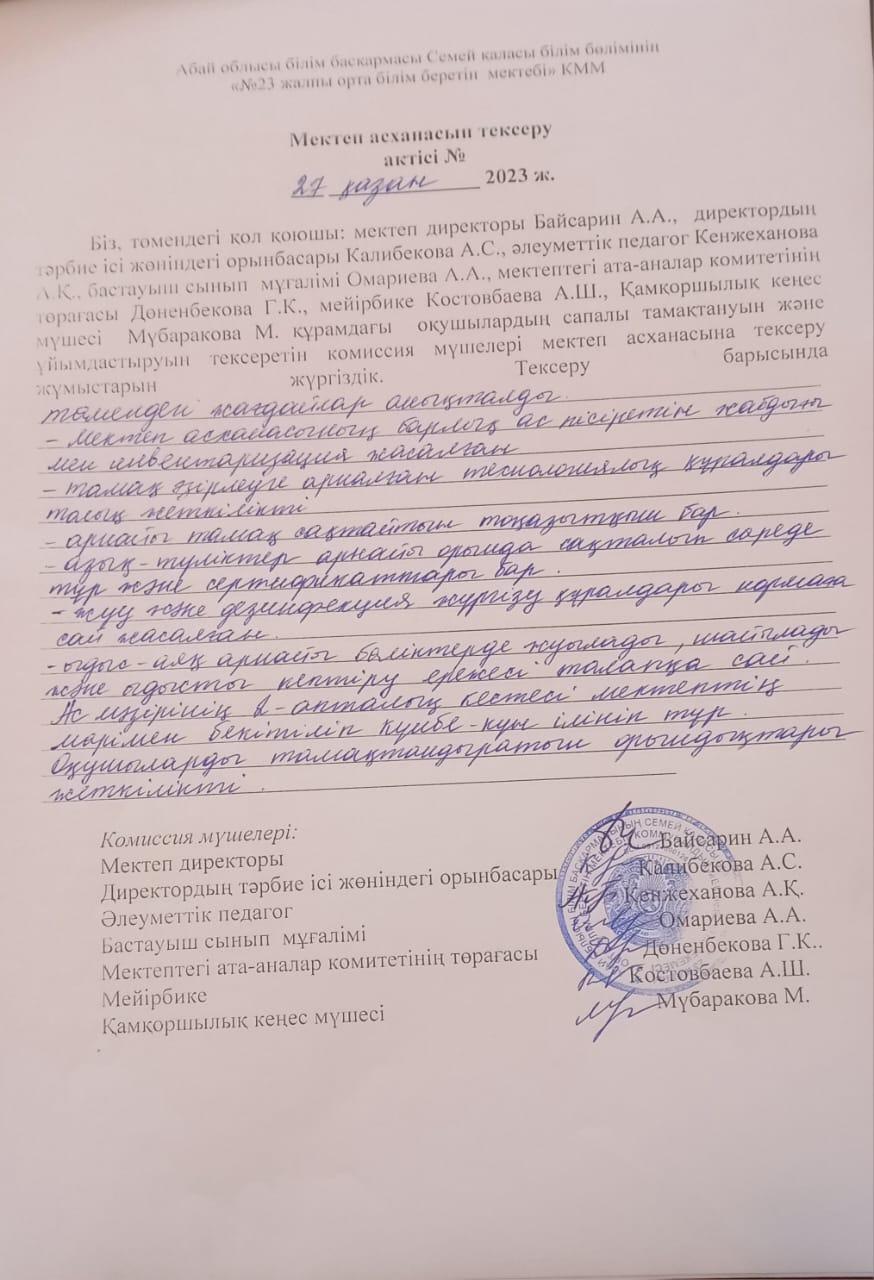 Абай облысы білім басқармасы Семей қаласы білім бөлімінің
«№23 жалпы орта білім беретін мектебі» КММ
Мектеп асханасын тексеру
актісі №
27 қазан 2023 ж.
Біз, төмендегі қол қоюшы: мектеп директоры Байсарин А.А., директордың
тәрбие ісі жөніндегі орынбасары Калибекова А.С., әлеуметтік педагог Кенжеханова
А.Қ., бастауыш сынып мұғалімі Омариева А.А., мектептегі ата-аналар комитетінің
төрағасы Дөненбекова Г.К., мейірбике Костовбаева А.Ш., Қамқоршылық кеңес
мүшесі Мүбаракова М. құрамдағы оқушылардың сапалы тамақтануын және
ұйымдастыруын тексеретін комиссия мүшелері мектеп асханасына тексеру
жұмыстарын жүргіздік. Тексеру барысында
төмендегі жағдайлар анықталды
- Мектеп асханасының барлық ас пісіретін жабдығы
мен инвентаризация жасалған
- тамақ әзірлеуге арналған технологиялық құралдары
толық жеткілікті
- арнайы тамақ сақтайтын тоңазытқыш бар.
- азық-түліктер арнайы орында сақталып сөреде
тұр және сертификаттары бар.
- жуу және дезинфекция жүргізу құралдары нормаға
сай жасалған.
- ыдыс-аяқ арнайы бөліктерде жуылады, шайылады
және ыдысты кептіру ережесі талапқа сай.
Ас мәзірінің 2-апталық кестесі мектептің
мөрімен бекітіліп күнбе-күн ілініп тұр.
Оқушыларды тамақтандыратын орындықтары
жеткілікті.
Комиссия мүшелері:
Мектеп директоры Байсарин А.А.
Директордың тәрбие ісі жөніндегі орынбасары Қалибекова А.С.
Әлеуметтік педагог Кенжеханова А.Қ.
Бастауыш сынып мұғалімі Омариева А.А.
Мектептегі ата-аналар комитетінің төрағасы Дөненбекова Г.К..
Мейірбике Костовбаева А.Ш.
Қамқоршылық кеңес мүшесі Мүбаракова М.